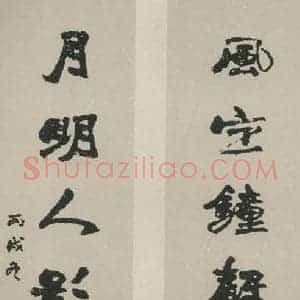 風定鐘聲
月明人影
丙戌冬
Shufaziliao.com